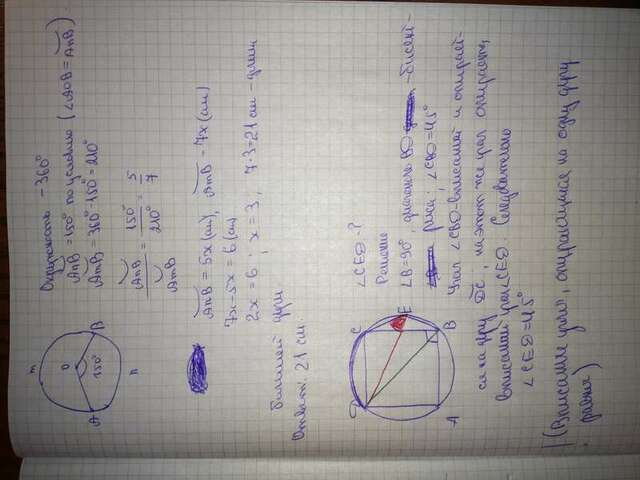 Окружность - 360°
AnB = 150° по условию (∠AOB = AnB)
AmB = 360° - 150° = 210°
AnB / AmB = 150° / 210° = 5 / 7
m
O
150°
A
B
n
AnB = 5x (см), AmB - 7x (см)
7x - 5x = 6 (см)
2x = 6; x = 3; 7·3 = 21 см - длина
большей дуги
Ответ: 21 см.
∠CED - ?
Решение
∠B = 90°, диагональ BD - биссект-
риса; ∠CBD = 45°
Угол ∠CBD - вписанный и опирает-
ся на дугу DC, на этот же угол опирается
вписанный угол ∠CED. Следовательно
∠CED = 45°
(Вписанные углы, опирающиеся на одну дугу,
равны)
D
C
E
A
B